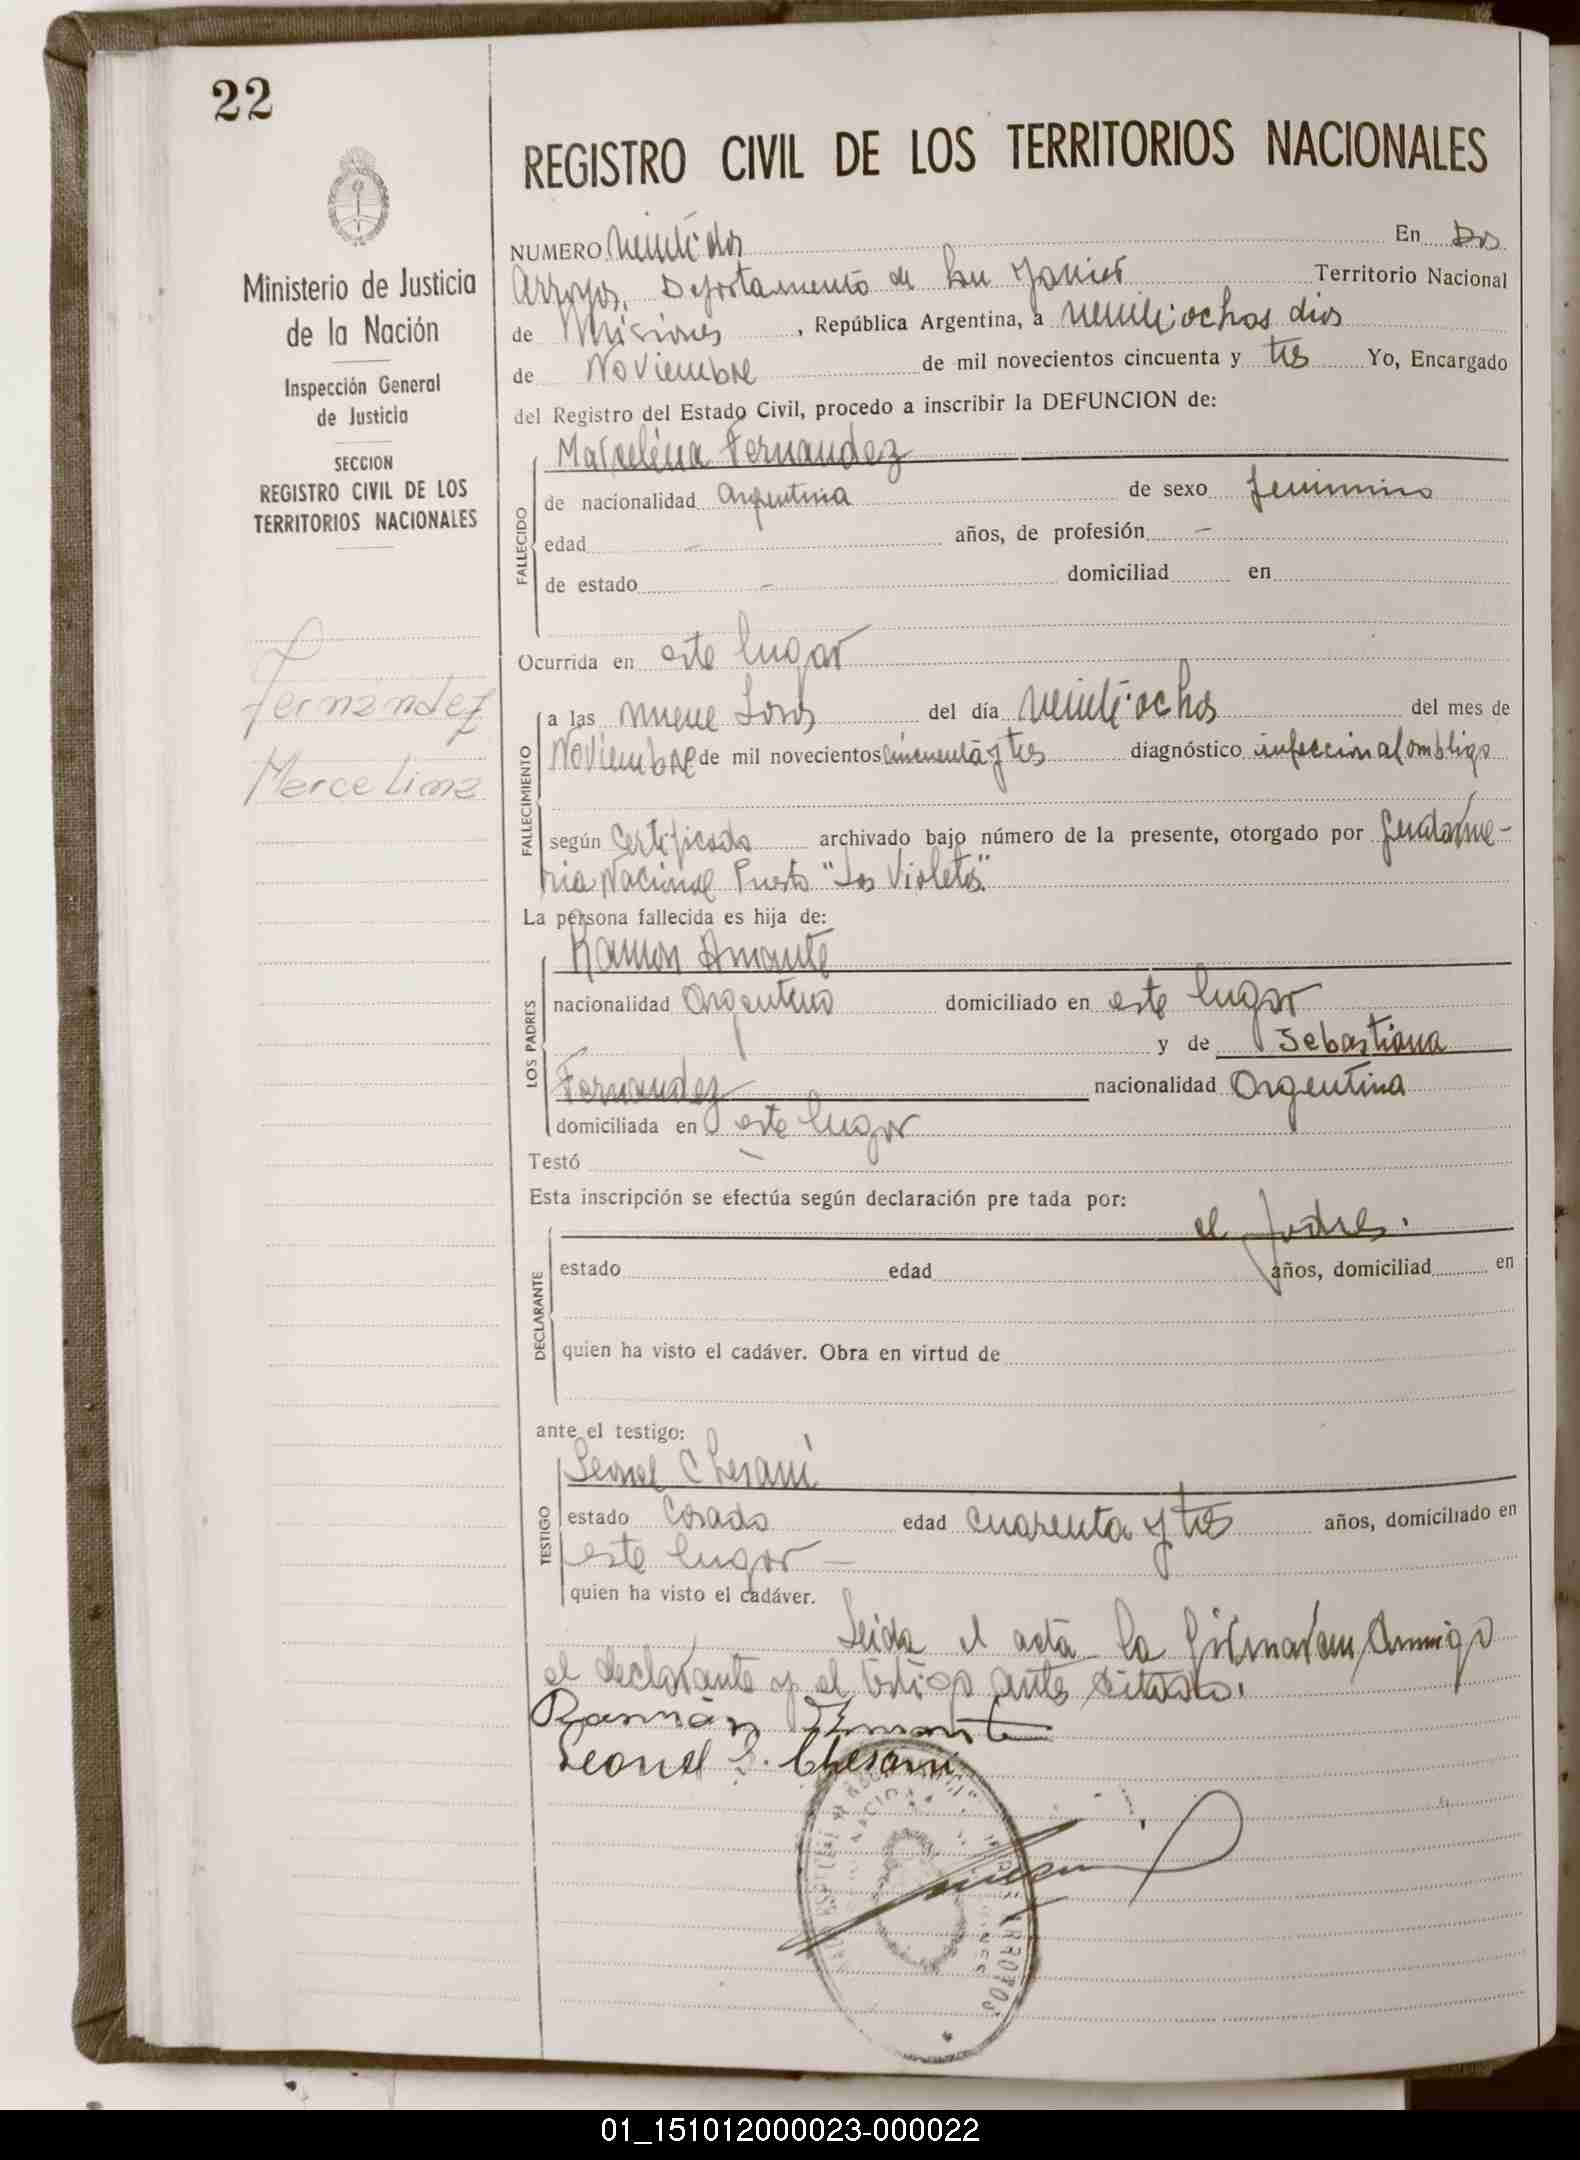 22
REGISTRO CIVIL DE LOS TERRITORIOS NACIONALES
Ministerio de Justicia
de la Nación
Inspección General
de Justicia
SECCION
REGISTRO CIVIL DE LOS
TERRITORIOS NACIONALES
Fernandez
Marcelina
NUMERO veinti dos En Dos
Arroyos, Departamento de San Javier Territorio Nacional
de Misiones, República Argentina, a veinti ochos dias
de Noviembre de mil novecientos cincuenta y tres Yo, Encargado
del Registro del Estado Civil, procedo a inscribir la DEFUNCION de:
Marcelina Fernandez
FALLECIDO
de nacionalidad Argentina de sexo femenino
edad - años, de profesión -
de estado - domiciliad en
Ocurrida en este lugar
FALLECIMIENTO
a las nueve horas del día veinti ochos del mes de
Noviembre de mil novecientos cincuenta y tres diagnóstico infeccion al ombligo
según Certificado archivado bajo número de la presente, otorgado por Gendarme-
ria Nacional Puesto "Las Violetas"
La persona fallecida es hija de:
Ramon Amante
LOS PADRES
nacionalidad Argentino domiciliado en este lugar
y de Sebastiana
Fernandez nacionalidad Argentina
domiciliada en este lugar
Testó
Esta inscripción se efectúa según declaración pre tada por:
el padres.
DECLARANTE
estado edad años, domiciliad en
quien ha visto el cadáver. Obra en virtud de
ante el testigo:
Leonel Chesani
TESTIGO
estado Casado edad cuarenta y tres años, domiciliado en
este lugar -
quien ha visto el cadáver.
Leida el acta la firmaran conmigo
el declarante y el testigo antes citado.
Ramón Amante
Leonel S. Chesani
ARROYOS
01_151012000023-000022